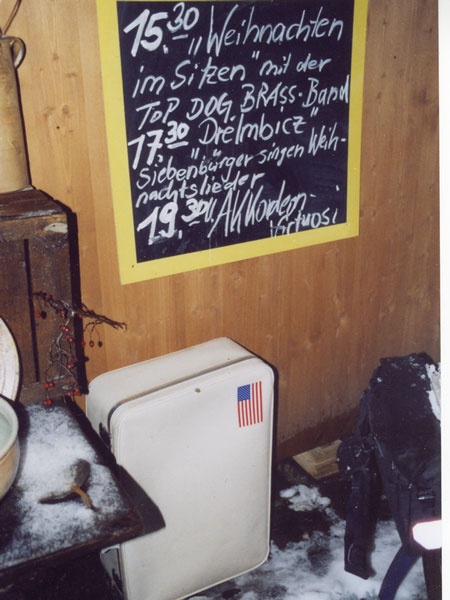 15.30 „Weihnachten
im Sitzen" mit der
TOP DOG BRASS-Band
17.30 „Dreimbicz"
Siebenbürger singen Weih-
nachtslieder
19.30 „Akkordeon-
virtuosi